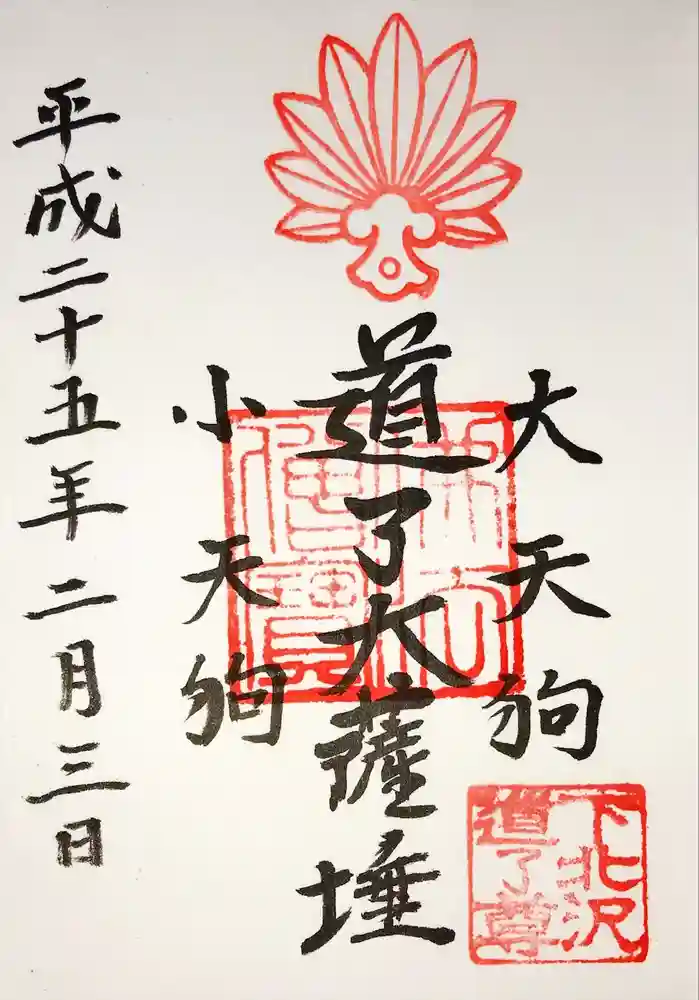 大天狗
道了大薩埵
小天狗
平成二十五年二月三日
佛法
僧寶
下北沢
道了尊